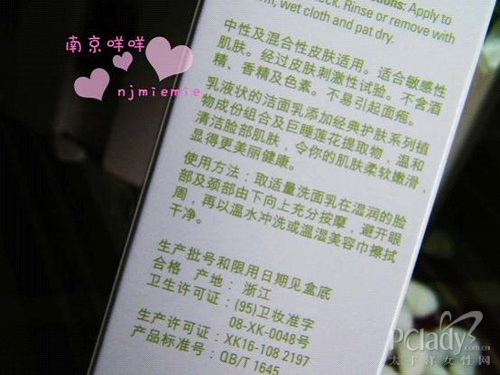 南京咩咩
njmiemie
ctions: Apply to
ck. Rinse or remove with
m, wet cloth and pat dry.
中性及混合性皮肤适用。适合敏感性
肌肤。经过皮肤刺激性试验。不含酒
精、香精及色素。不易引起面疱。
乳液状的洁面乳添加经典护肤系列植
物成份组合及巨睡莲花提取物，温和
清洁脸部肌肤，令你的肌肤柔软嫩滑，
显得更美丽健康。
使用方法：取适量洗面乳在湿润的脸
部及颈部由下向上充分按摩，避开眼
周，再以温水冲洗或温湿美容巾擦拭
干净。
生产批号和限用日期见盒底
合格 产地：浙江
卫生许可证：(95)卫妆准字
08-XK-0048号
生产许可证：XK16-108 2197
产品标准号：QB/T 1645
PClady
.com.cn
太平洋女性网